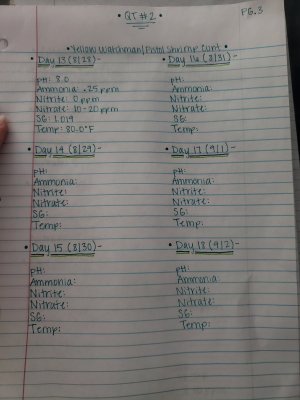 • QT #2 •
PG. 3
• Yellow Watchman/Pistol Shrimp Cont •
• Day 13 (8/28) -
pH: 8.0
Ammonia: .25 ppm
Nitrite: 0 ppm
Nitrate: 10-20 ppm
SG: 1.019
Temp: 80.0°F
• Day 14 (8/29) -
pH:
Ammonia:
Nitrite:
Nitrate:
SG:
Temp:
• Day 15 (8/30) -
pH:
Ammonia:
Nitrite:
Nitrate:
SG:
Temp:
• Day 16 (8/31) -
pH:
Ammonia:
Nitrite:
Nitrate:
SG:
Temp:
• Day 17 (9/1) -
pH:
Ammonia:
Nitrite:
Nitrate:
SG:
Temp:
• Day 18 (9/2) -
pH:
Ammonia:
Nitrite:
Nitrate:
SG:
Temp: